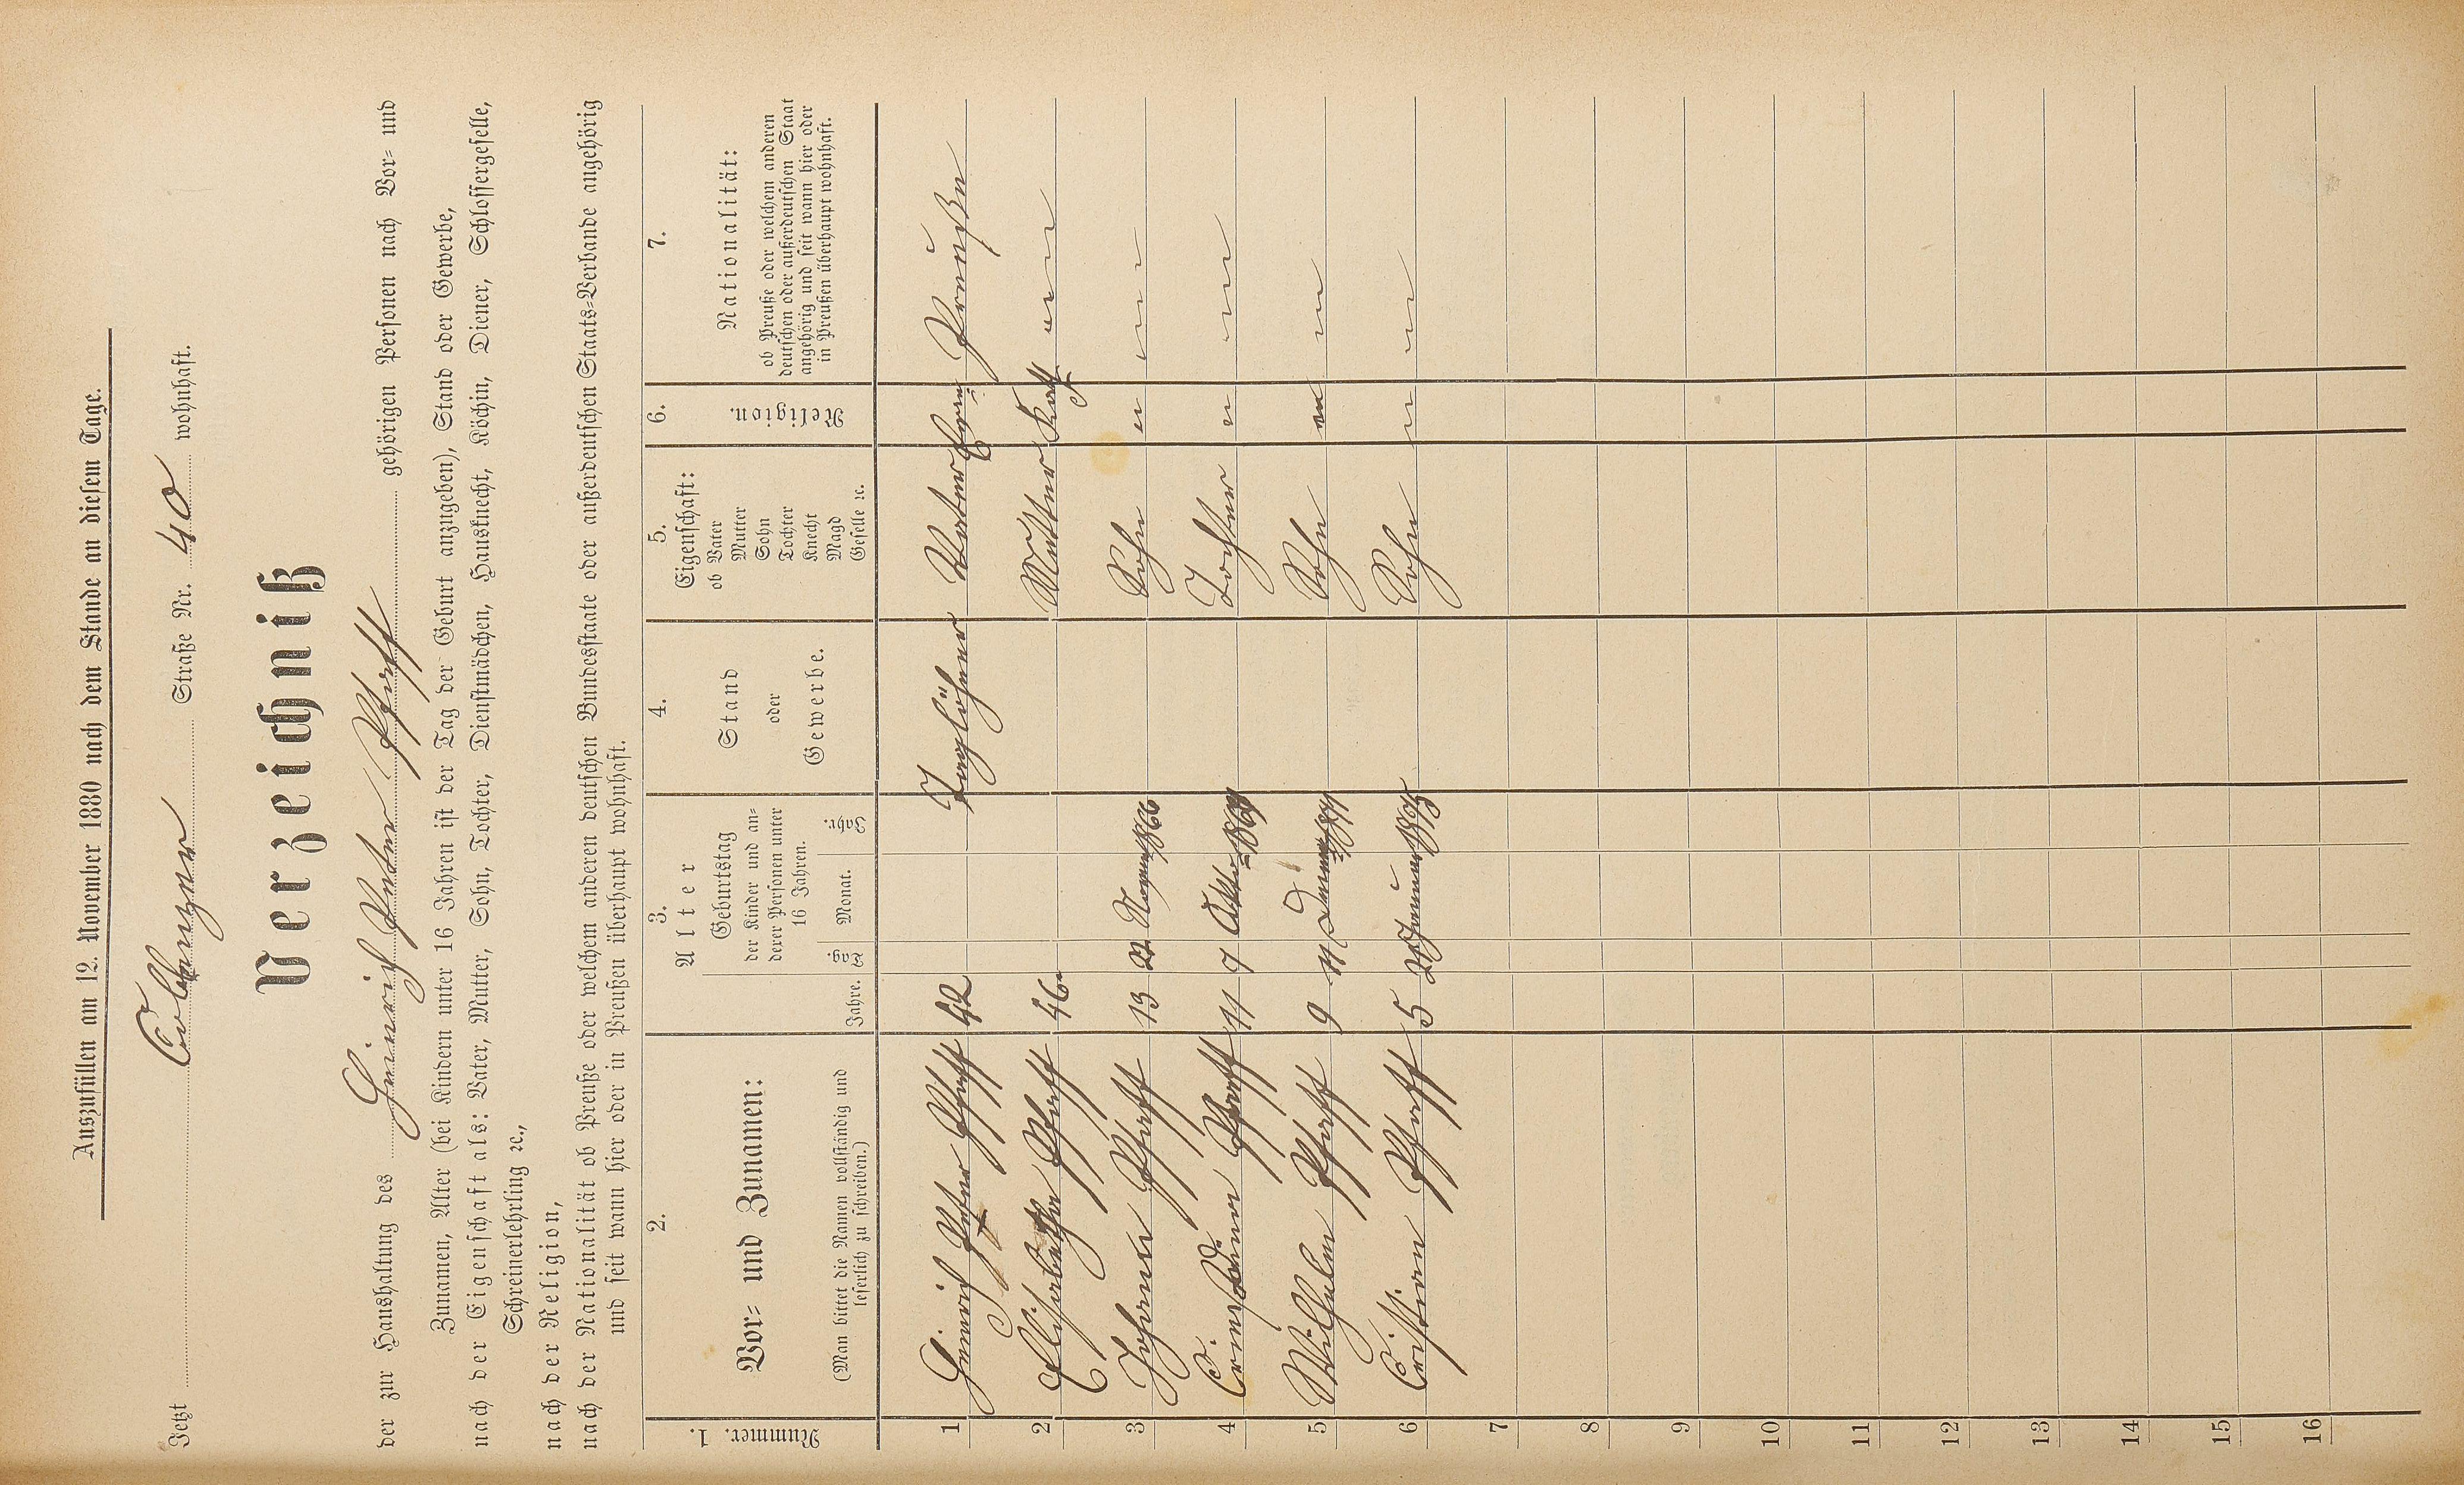 Auszufüllen am 12. November 1880 nach dem Stande an diesem Tage.
Jetzt Coblenzer Straße Nr. 40 wohnhaft.
Verzeichniß
der zur Haushaltung des Heinrich Peter Pfaff gehörigen Personen nach Vor- und
Zunamen, Alter (bei Kindern unter 16 Jahren ist der Tag der Geburt anzugeben), Stand oder Gewerbe,
nach der Eigenschaft als: Vater, Mutter, Sohn, Tochter, Dienstmädchen, Hausknecht, Köchin, Diener, Schlossergeselle,
Schreinerlehrling ꝛc.,
nach der Religion,
nach der Nationalität ob Preuße oder welchem anderen deutschen Bundesstaate oder außerdeutschen Staats-Verbande angehörig
und seit wann hier oder in Preußen überhaupt wohnhaft.
Nummer. 1.
2.
Vor- und Zunamen:
(Man bittet die Namen vollständig und
leserlich zu schreiben.)
3.
Alter
Jahre.
Geburtstag
der Kinder und an-
derer Personen unter
16 Jahren.
Tag. Monat. Jahr.
4.
Stand
oder
Gewerbe.
5.
Eigenschaft:
ob Vater
Mutter
Sohn
Tochter
Knecht
Magd
Geselle ꝛc.
6.
Religion.
7.
Nationalität:
ob Preuße oder welchem anderen
deutschen oder außerdeutschen Staat
angehörig und seit wann hier oder
in Preußen überhaupt wohnhaft.
1 Heinrich Peter Pfaff 42 Taglöhner Vater Evan Preuße
2 Elisabetha Pfaff 46 Mutter Kath " "
3 Johann Pfaff 13 22 November 1866 Sohn " " "
4 Pfaff 11 7 1869 Tochter " " "
5 Wilhelm Pfaff 9 11 1871 Sohn " " "
6 Cristian Pfaff 5 21 Januar 1875 Sohn " " "
7
8
9
10
11
12
13
14
15
16